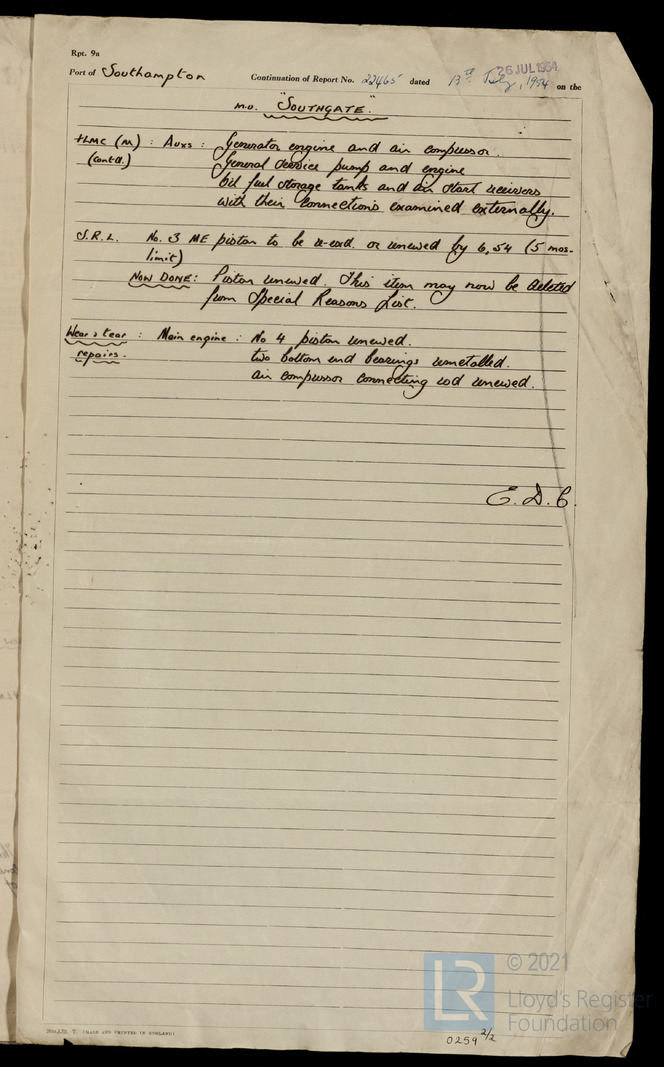 Rpt. 9a
26 JUL 1954
Port of Southampton Continuation of Report No. 22465 dated 13th July, 1954 on the
M.V. "SOUTHGATE"
+LMC (M) : Auxs : Generator engine and air compressor.
(contd.) General service pump and engine
Oil fuel storage tanks and air start receivers
with their connections examined externally.
S.R.L. No. 3 ME piston to be re-exd. or renewed by 6,54 (5 mos.
limit)
NOW DONE: Piston renewed. This item may now be deleted
from Special Reasons List.
Wear & tear : Main engine : No 4 piston renewed.
repairs. two bottom end bearings remetalled.
air compressor connecting rod renewed.
E. D. C.
T. (MADE AND PRINTED IN ENGLAND)
LR
© 2021
Lloyd's Register
Foundation
0259 2/2